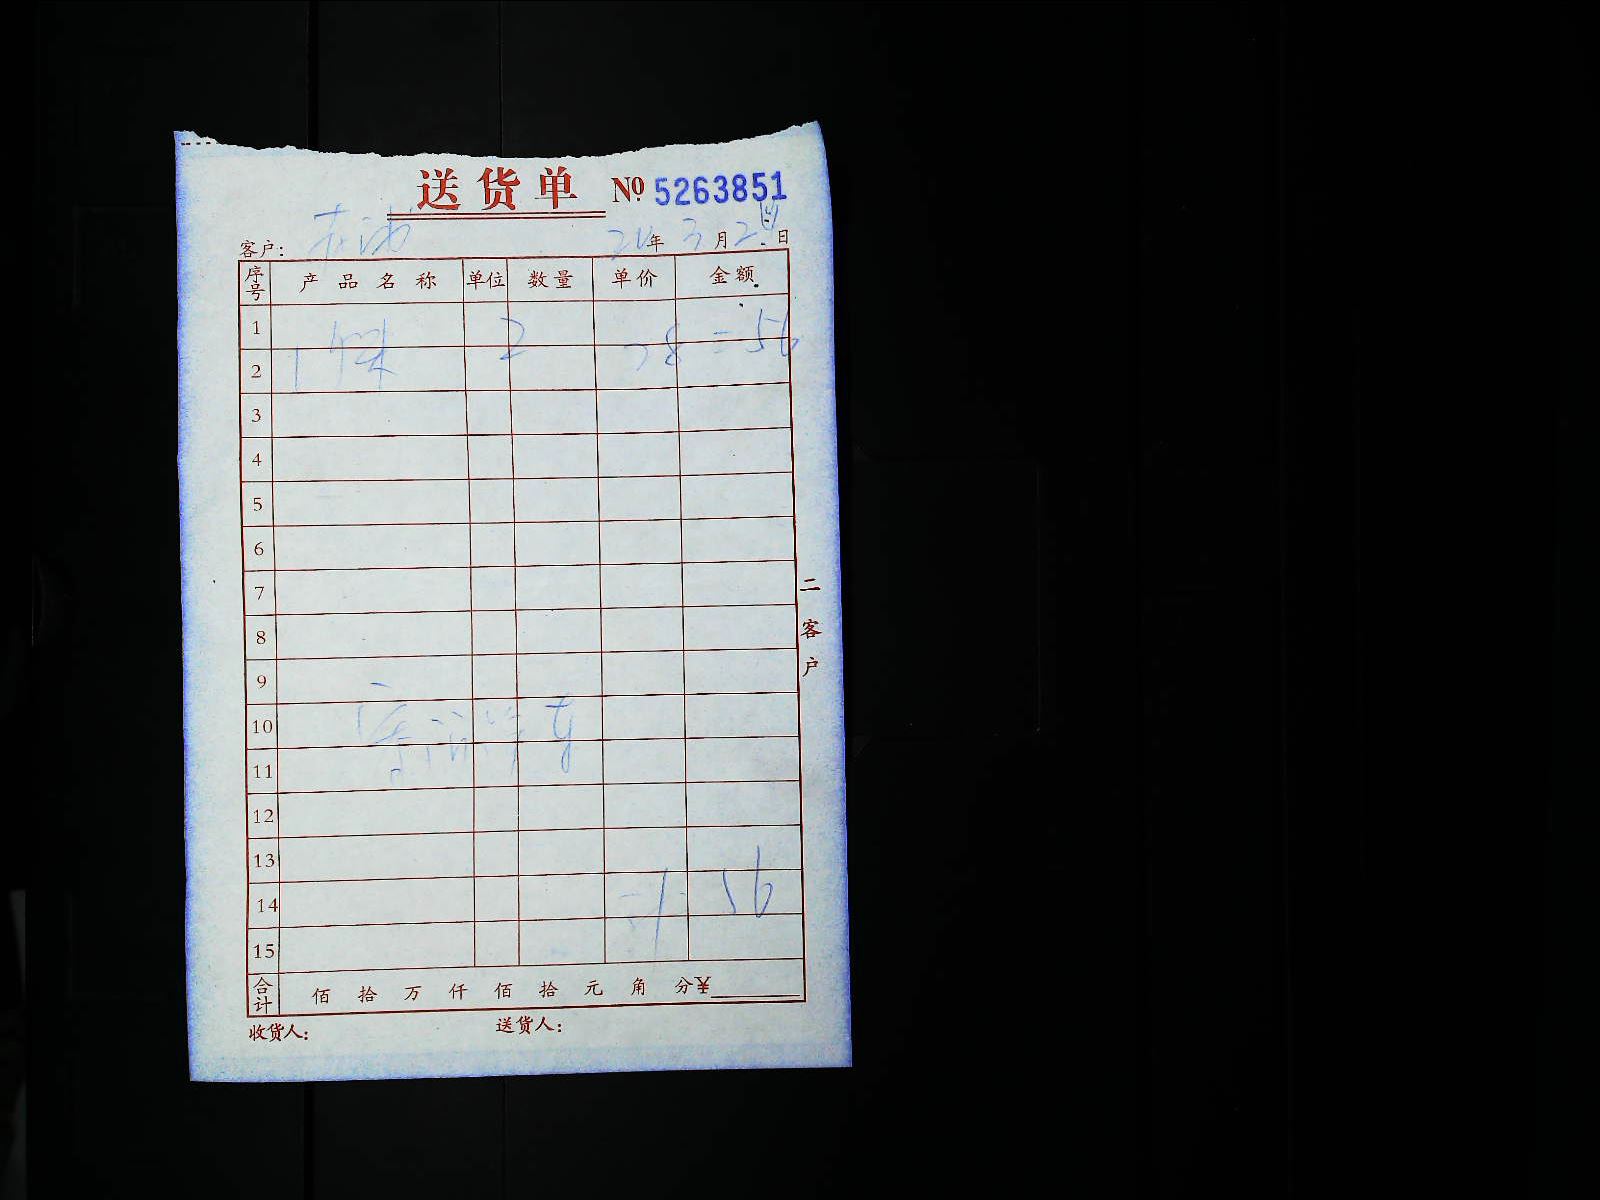 送货单 № 5263851
客户: 年 3月 日
序号 产品名称 单位 数量 单价 金额
1 2 28 = 56
2
3
4
5
6
7
8
9
10
11
12
13
14 56
15
合计 佰 拾 万 仟 佰 拾 元 角 分¥
收货人: 送货人:
二客户